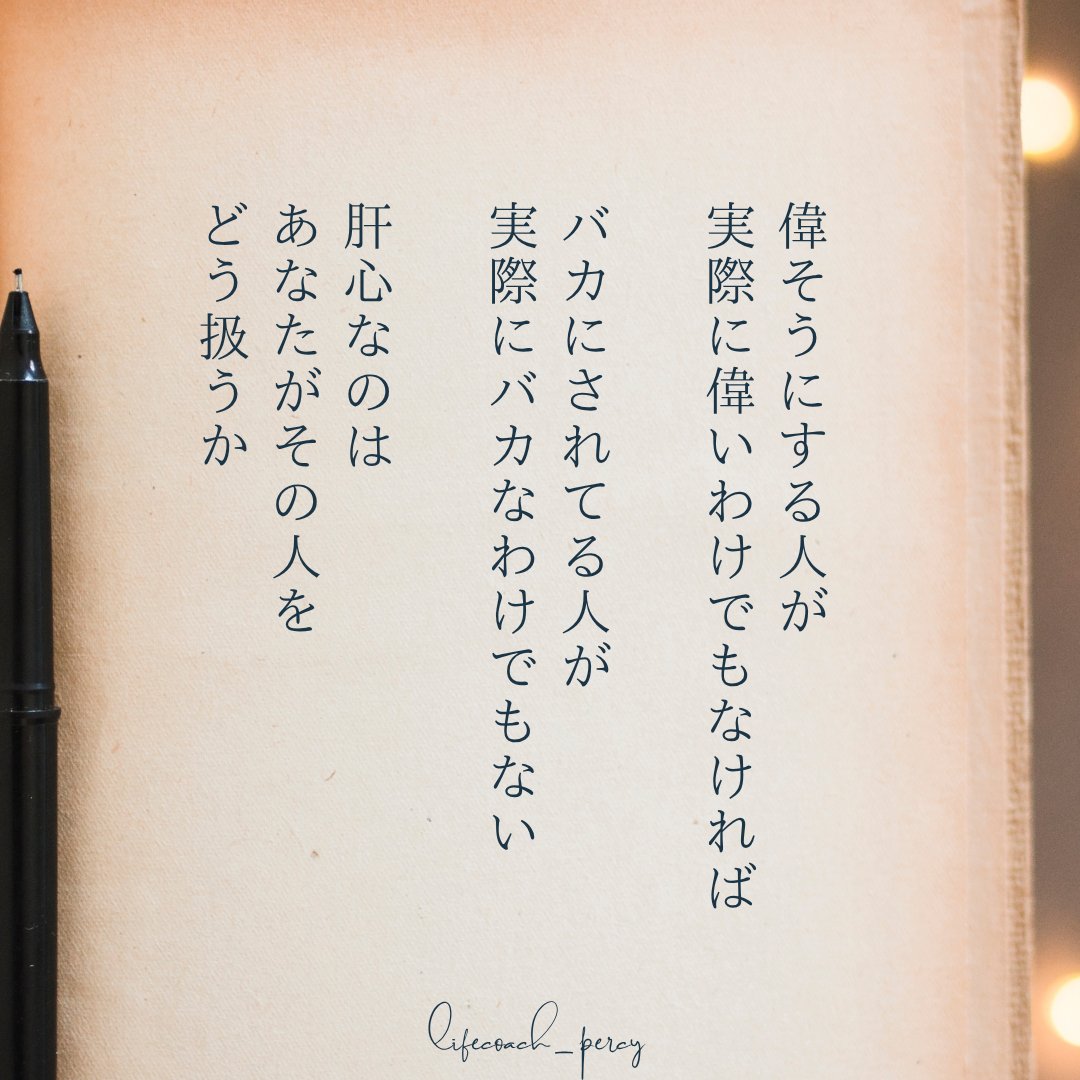 偉そうにする人が
実際に偉いわけでもなければ
バカにされてる人が
実際にバカなわけでもない
肝心なのは
あなたがその人を
どう扱うか
lifecoach_percy